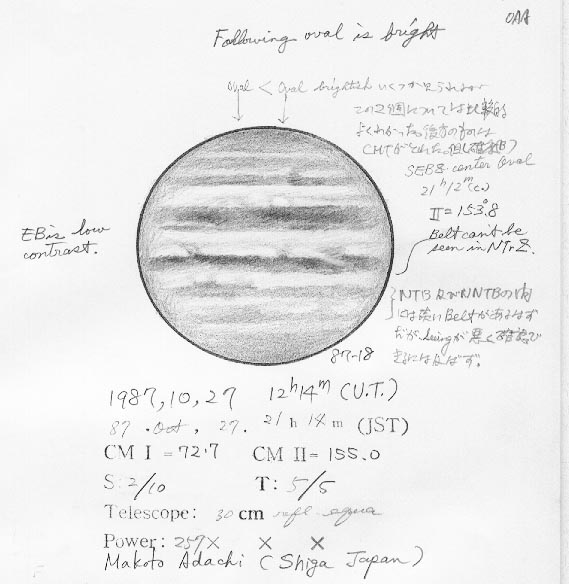 OAA
Following oval is bright
oval < oval brightish いくつか見られるが
この2個については比較的
よくわかった。後方のものは
CMTがとれた。但し
SEBZ center Oval
21h12m(c.)
II=153.°8
Belt can't be
seen in NTrZ.
EB is low
contrast.
NTB及びNNTBの内
には淡いBeltがあるはず
だが、seeingが悪く確認
するには及ばず。
87-18
1987,10,27 12h14m (U.T.)
87. Oct, 27. 21h 14m (JST)
CM I = 72.7 CM II = 155.0
S: 2/10 T: 5/5
Telescope: 30 cm refl.
Power: 257× × ×
Makoto Adachi (Shiga Japan)